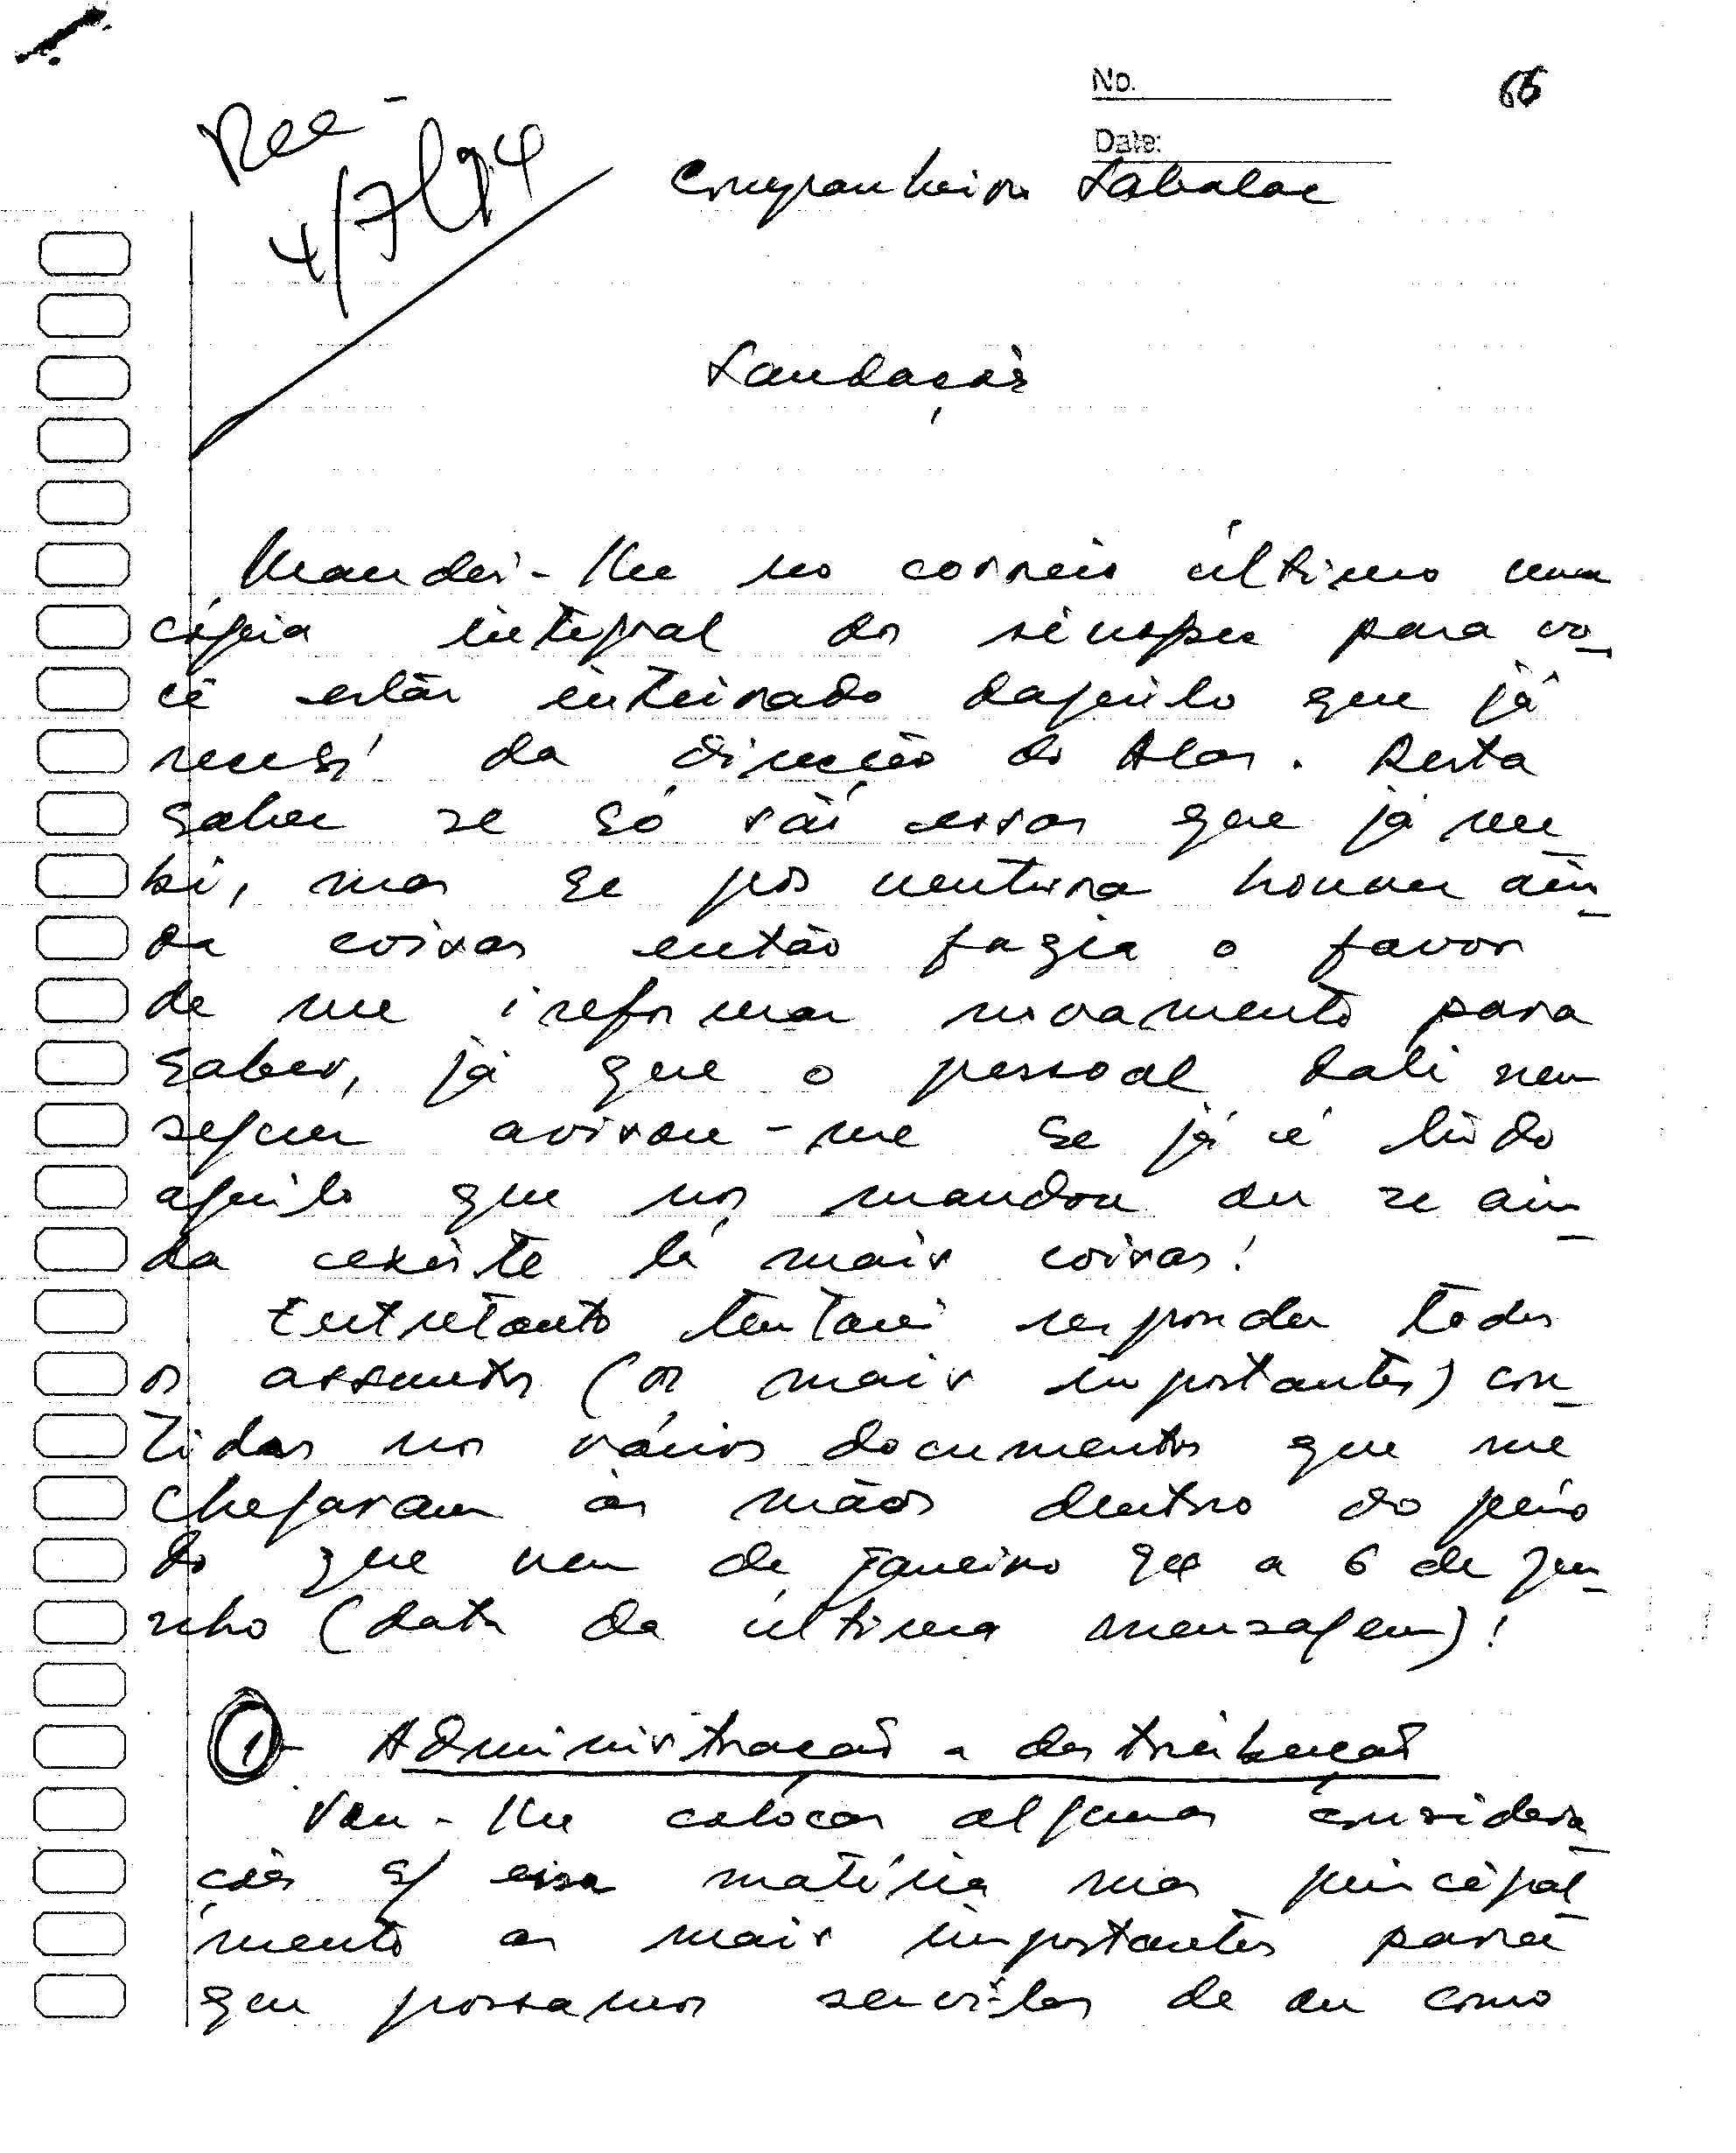 No. 66
Date:
Rec-
4/7/94
Companheiro Sabalac
Saudações
Mandei-lhe no correio último uma
cópia integral da sinopse para vo-
cê estár inteirado daquilo que já
recebí da direcção do Alas. Resta
saber se só são essas que já rece
bi, mas se por ventura houver ain-
da coisas então fazia o favor
de me informar novamente para
saber, já que o pessoal dali nem
sequer avisou-me se já é tudo
aquilo que nos mandou ou se ain-
da existe lá mais coisas!
Entretanto tentarei responder todos
os assuntos (os mais importantes) con-
tidos nos vários documentos que me
chegaram às mãos dentro do perío
do que vem de janeiro 94 a 6 de ju-
nho (data da última mensagem)!
1- Administração e destribuição
Vou-lhe colocar algumas considera-
ções s/ essa matéria mas principal-
mente as mais importantes para
que possamos serví-las de ou como